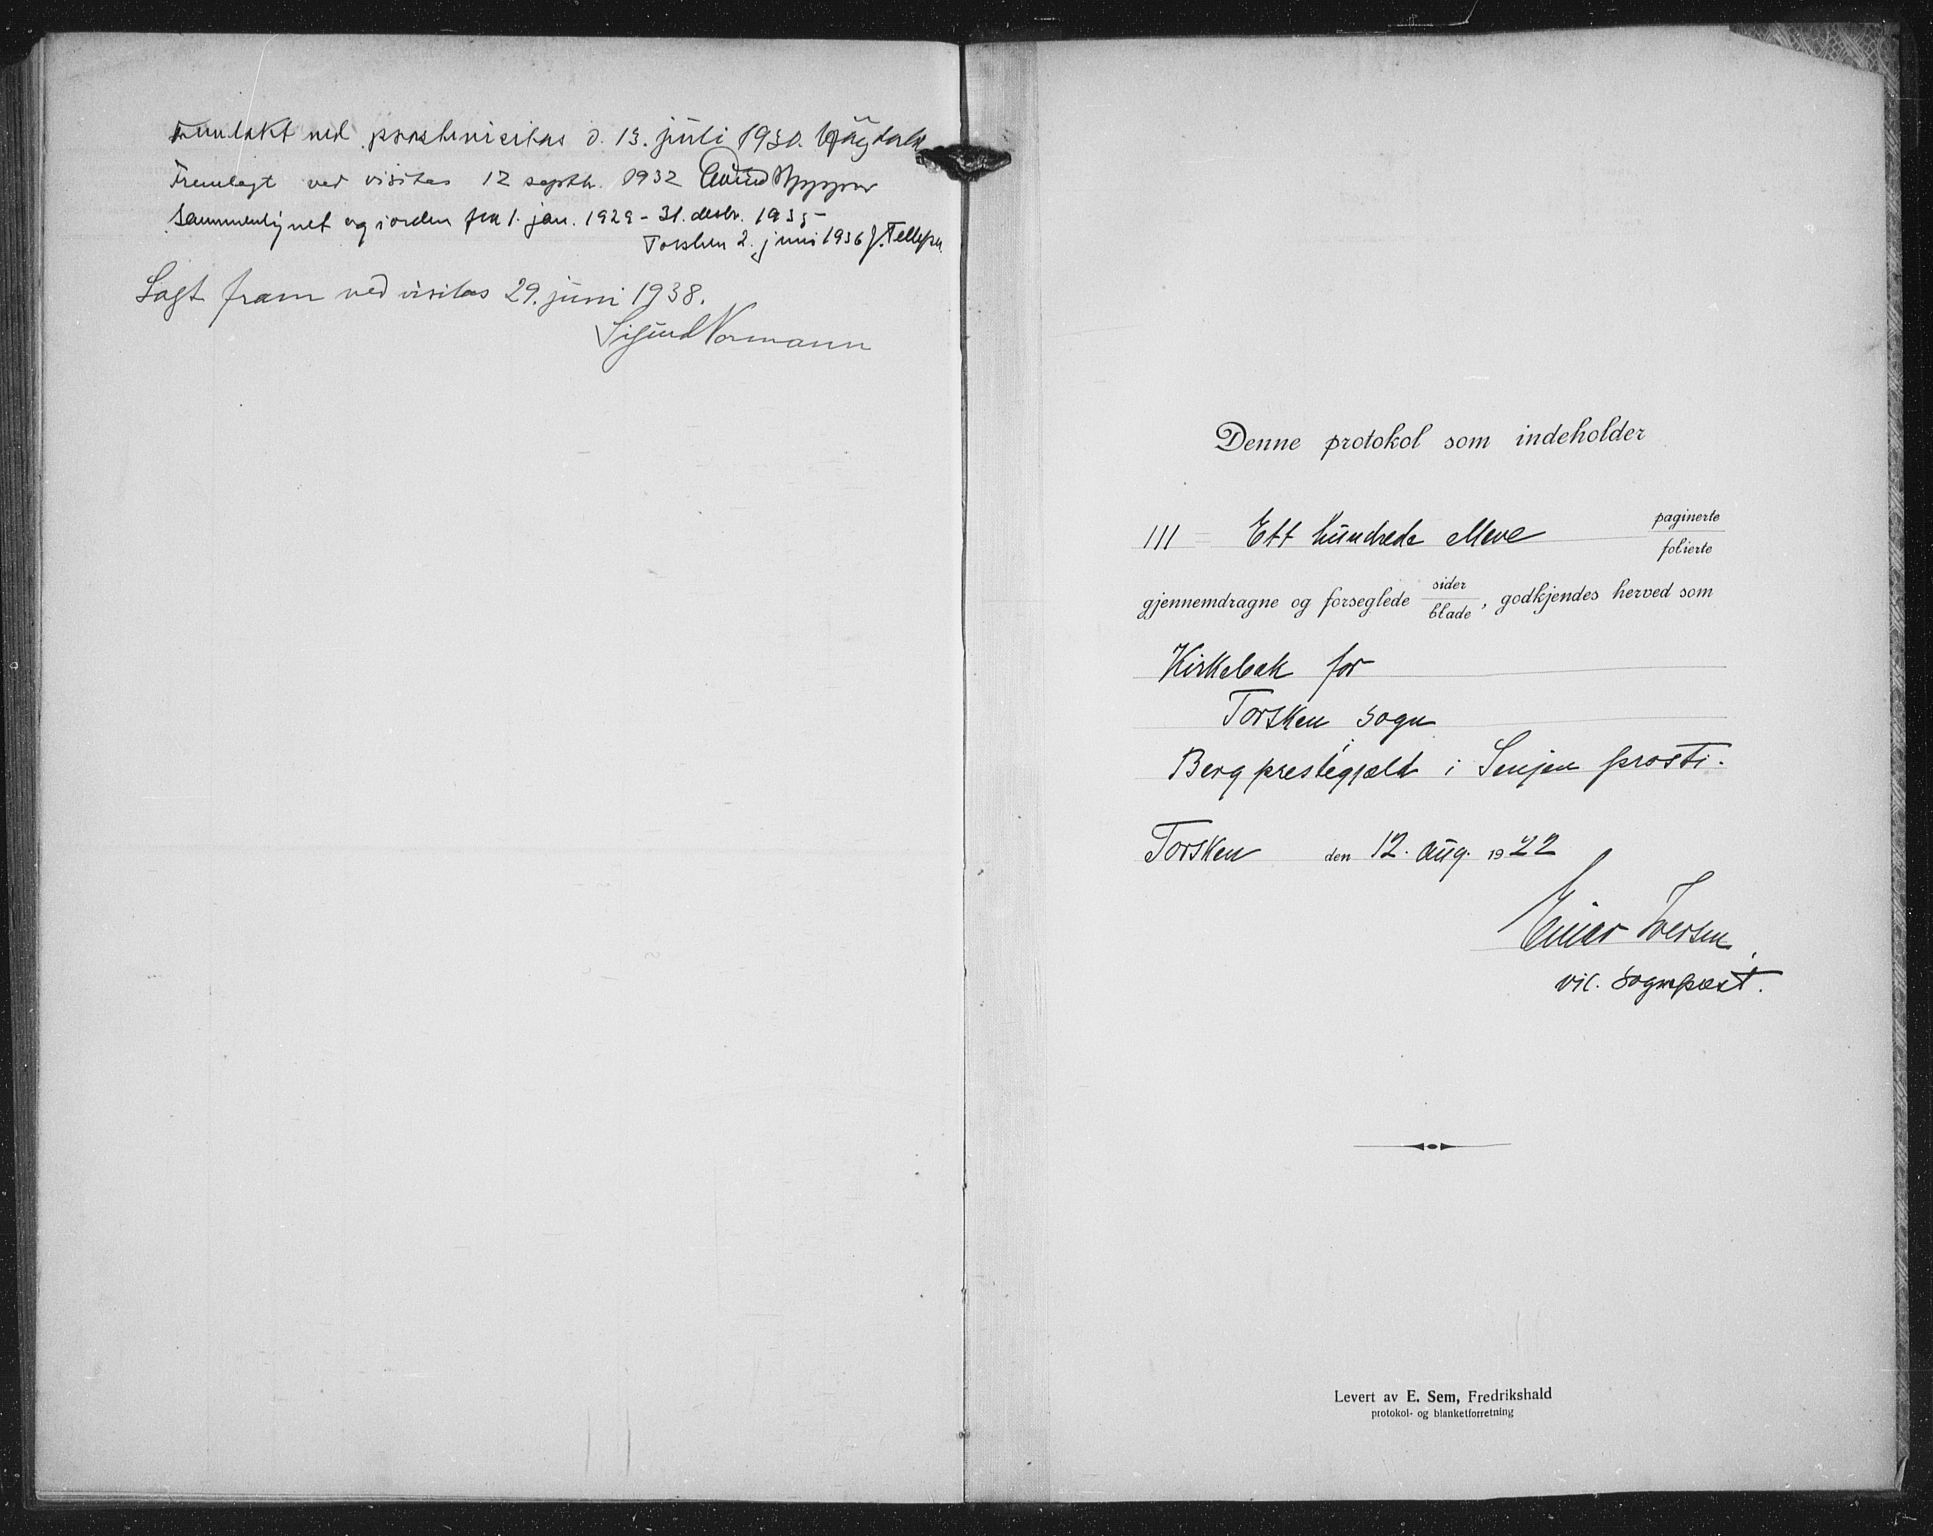 Fremlakt ved prostevisitas d. 13. juli 1930.
Fremlagt ved visitas 12 septbr. 1932 Eivind Berggrav
Sammenlignet og i orden fra 1. jan. 1929 - 31. desbr. 1935
Torsken 2. juni 1936 J. Tellefsen
Lagt fram ved visitas 29. juni 1938.
Sigurd Normann
Denne protokol som indeholder
111 = Ett hundrede elleve paginerte
folierte
gjennemdragne og forseglede sider
blade, godkjendes herved som
Kirkebok for
Torsken sogn
Berg prestegjeld i Senjen prosti.
Torsken den 12. aug. 1922
Einar Iversen
vic. sogneprest.
Levert av E. Sem, Fredrikshald
protokol- og blanketforretning